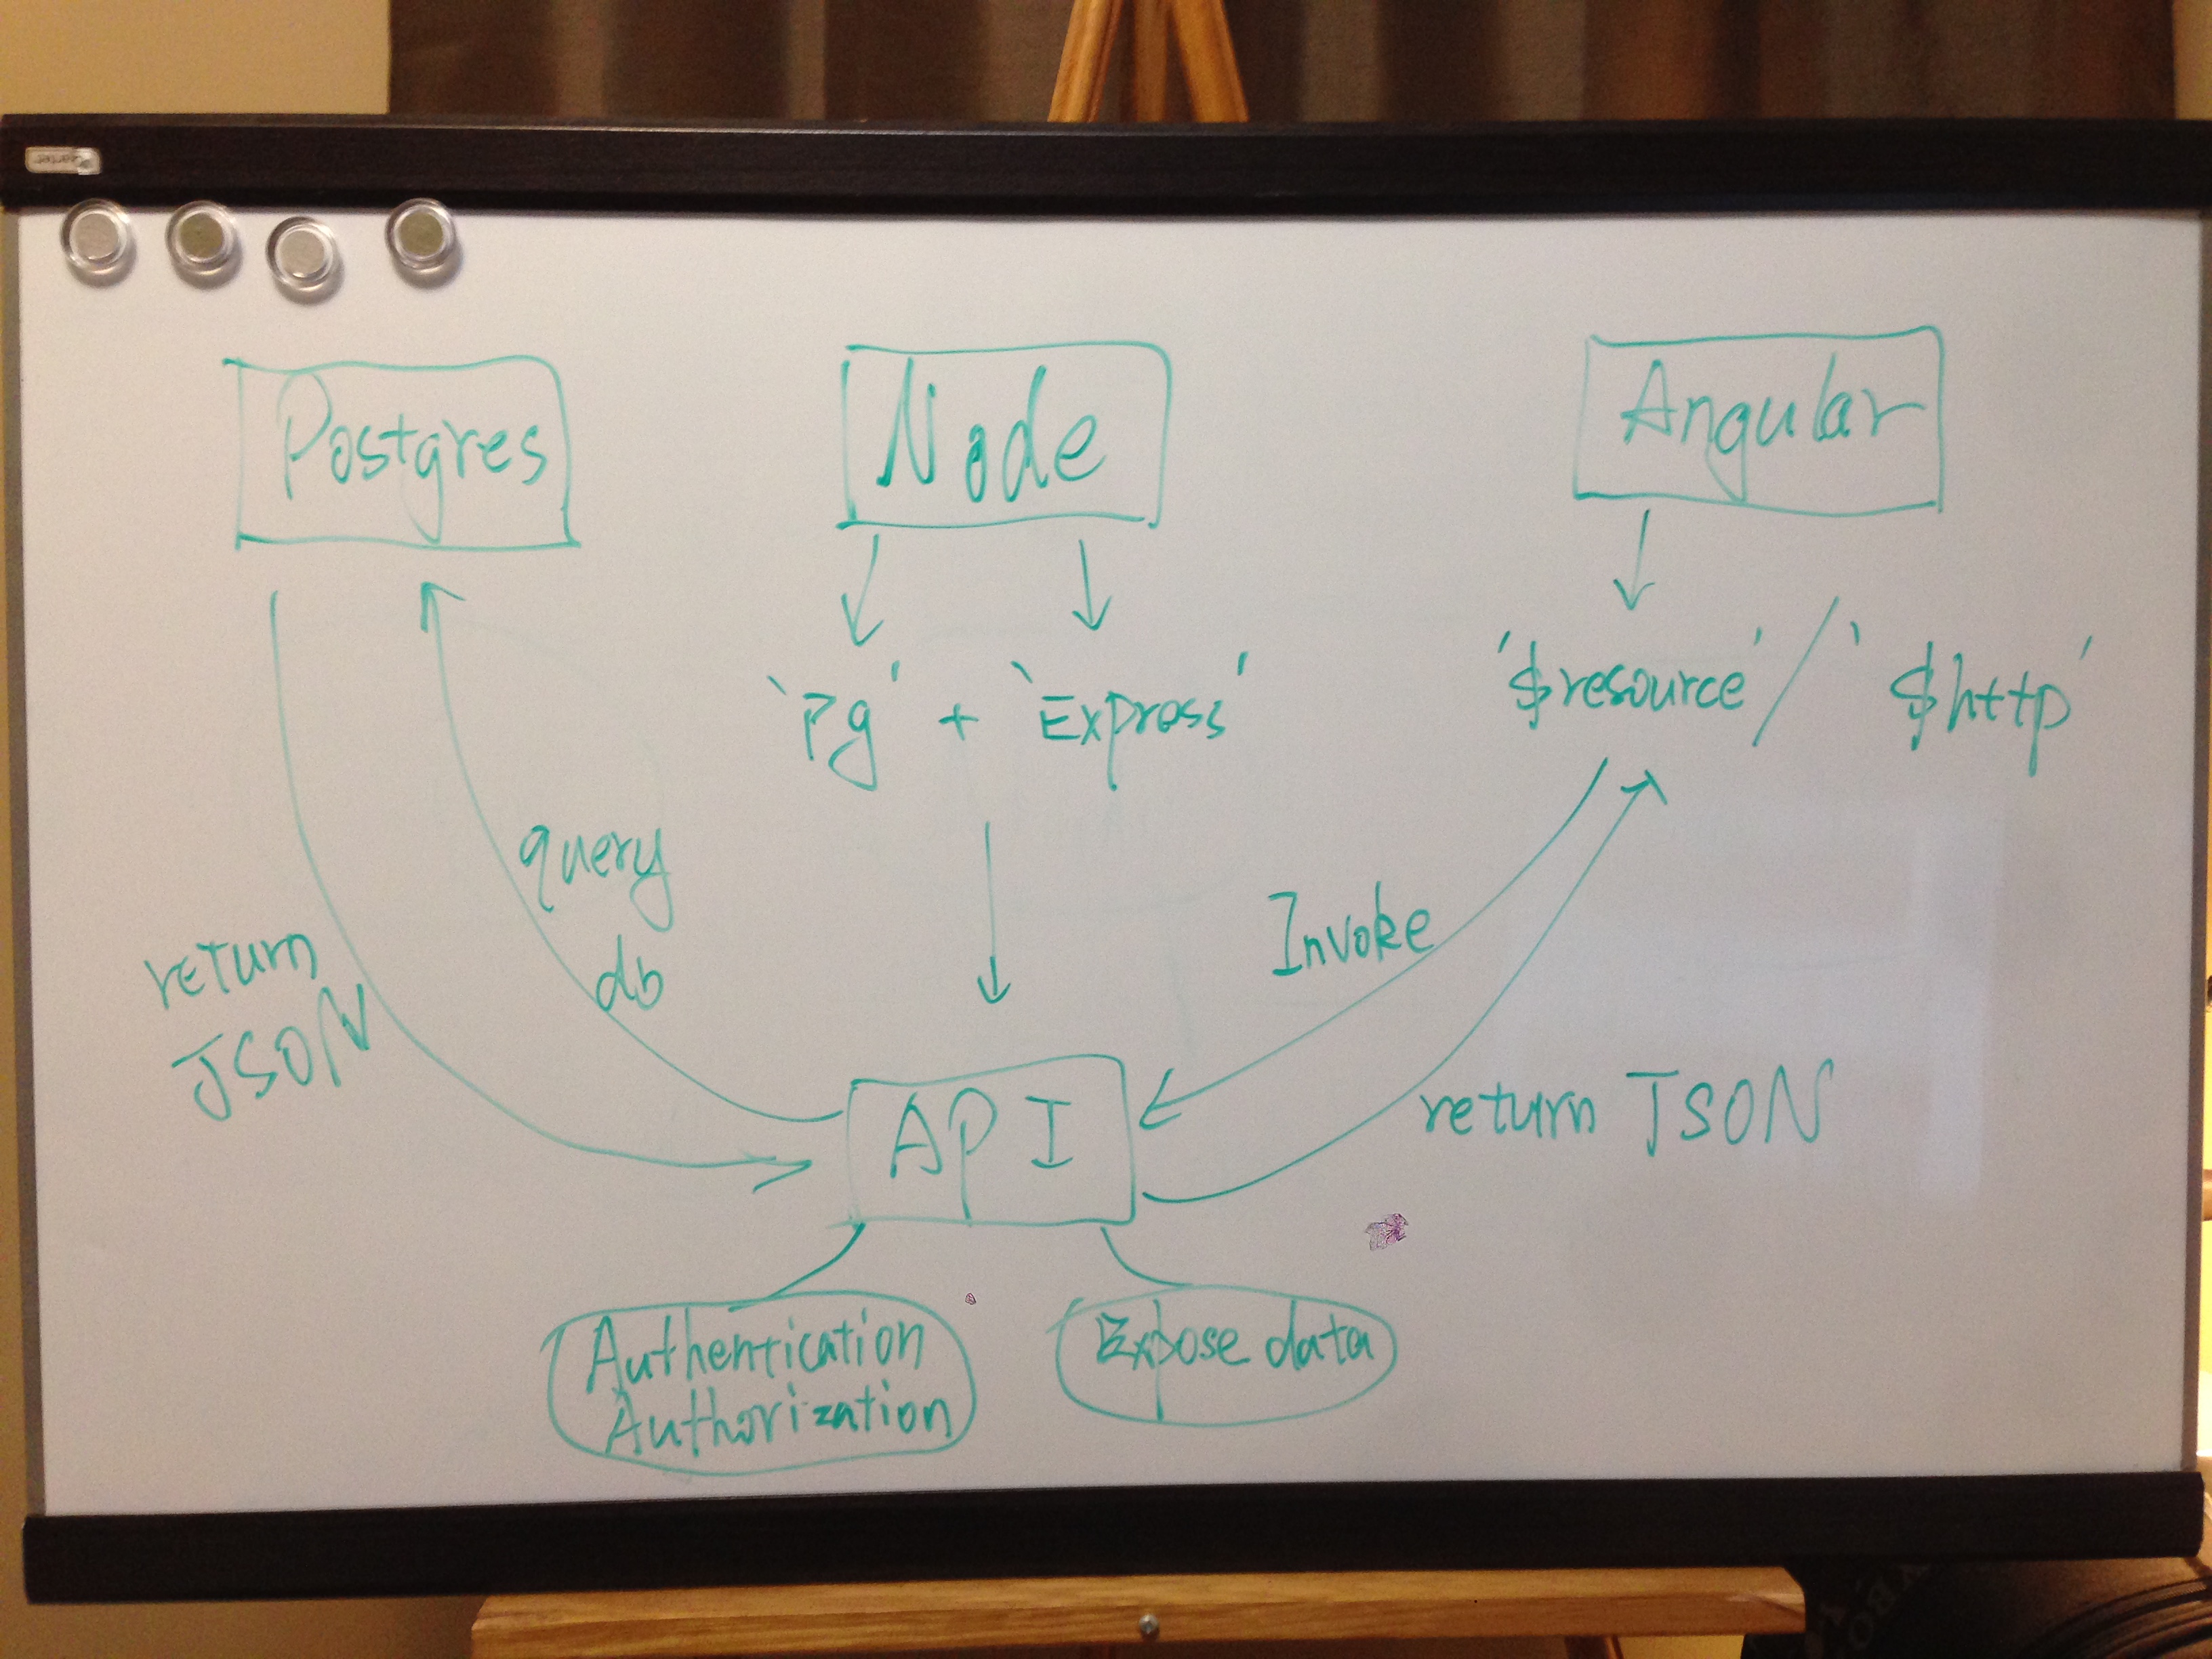 Postgres
Node
Angular
`Pg' + `Express'
'$resource' / ` $http'
query
db
return
JSON
Invoke
return JSON
API
Authentication
Authorization
Expose data